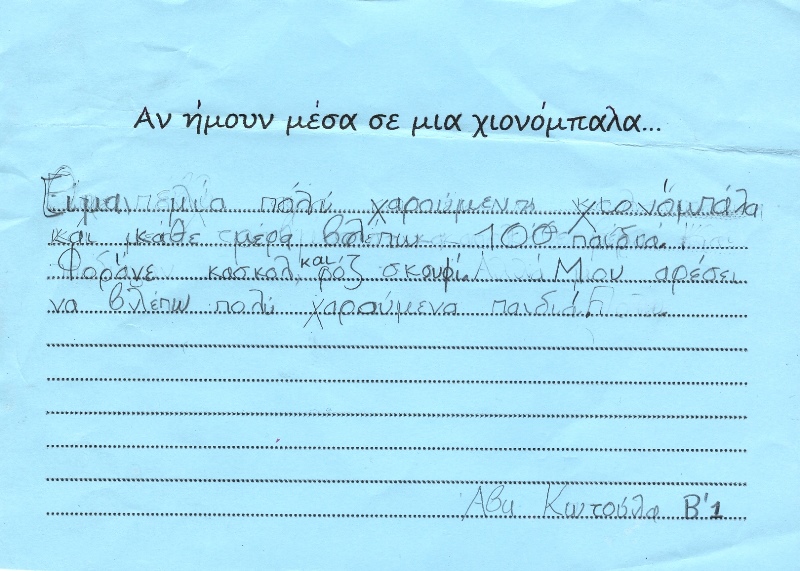 Αν ήμουν μέσα σε μια χιονόμπαλα...
Είμαι μία πολύ χαρούμενη χιονόμπαλα
και κάθε μέρα βλέπω 100 παιδιά.
Φοράνε κασκόλ και ροζ σκουφί. Μου αρέσει
να βλέπω πολύ χαρούμενα παιδιά!
Κωτούλα Β'1